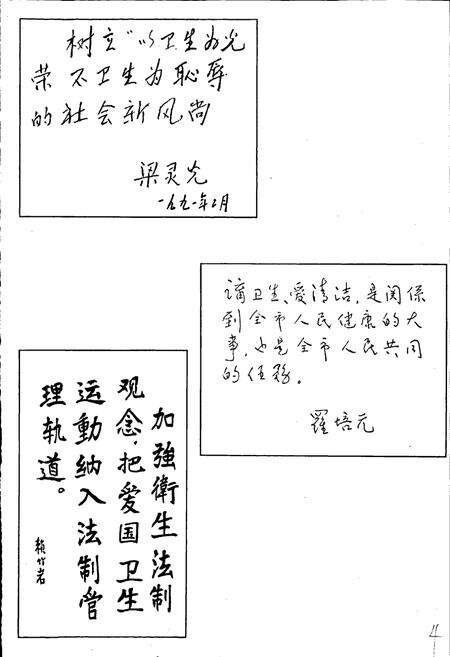 树立“以卫生为光
荣不卫生为耻辱
的社会新风尚
梁灵光
一九九一年二月
讲卫生、爱清洁，是関係
到全市人民健康的大
事，也是全市人民共同
的任务。
羅培元
加強衛生法制
观念，把爱国卫生
运動纳入法制管
理轨道。
赖竹岩
4